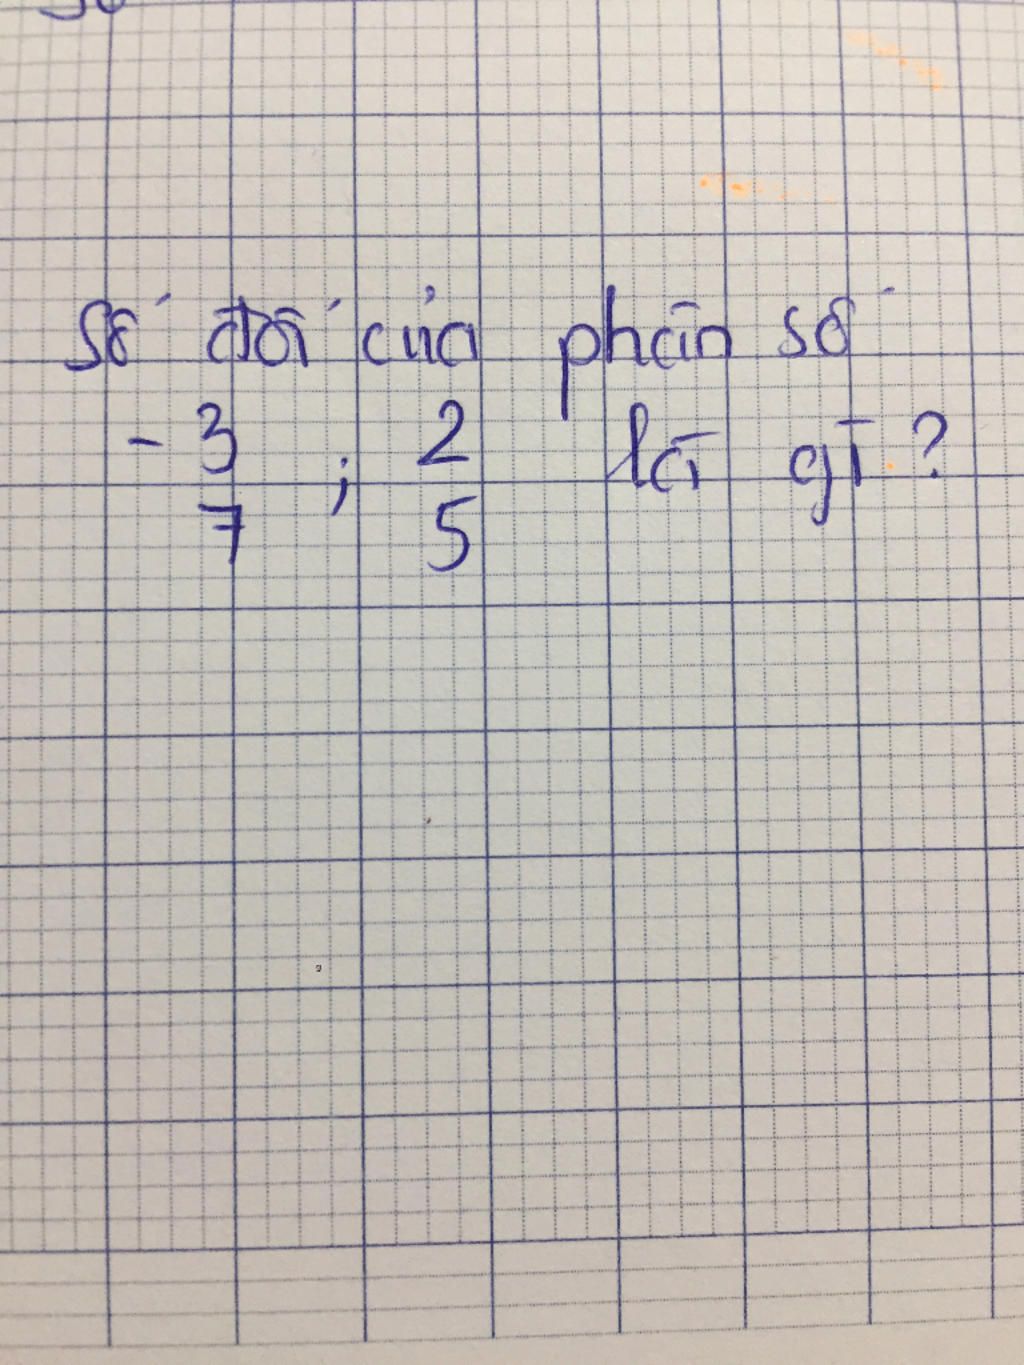 Số đối của phân số
-3/7 ; 2/5 là gì ?